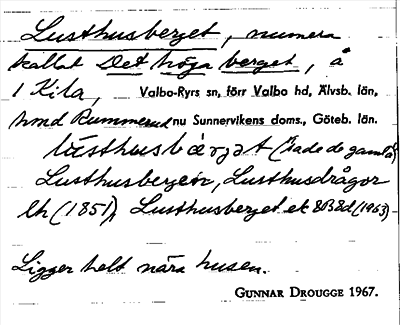 Lusthusberget, numera
kallat Det höga berget, å
1 Kila, Valbo-Ryrs sn, förr Valbo hd, Älvsb. län,
nu Sunnervikens doms., Göteb. län.
lústhusbàrjat (sade de gamla)
Lusthusbergen, Lusthusdrågor
lh (1851), Lusthusberget ek 8B8d (1963)
Ligger helt nära husen.
GUNNAR DROUGGE 1967.